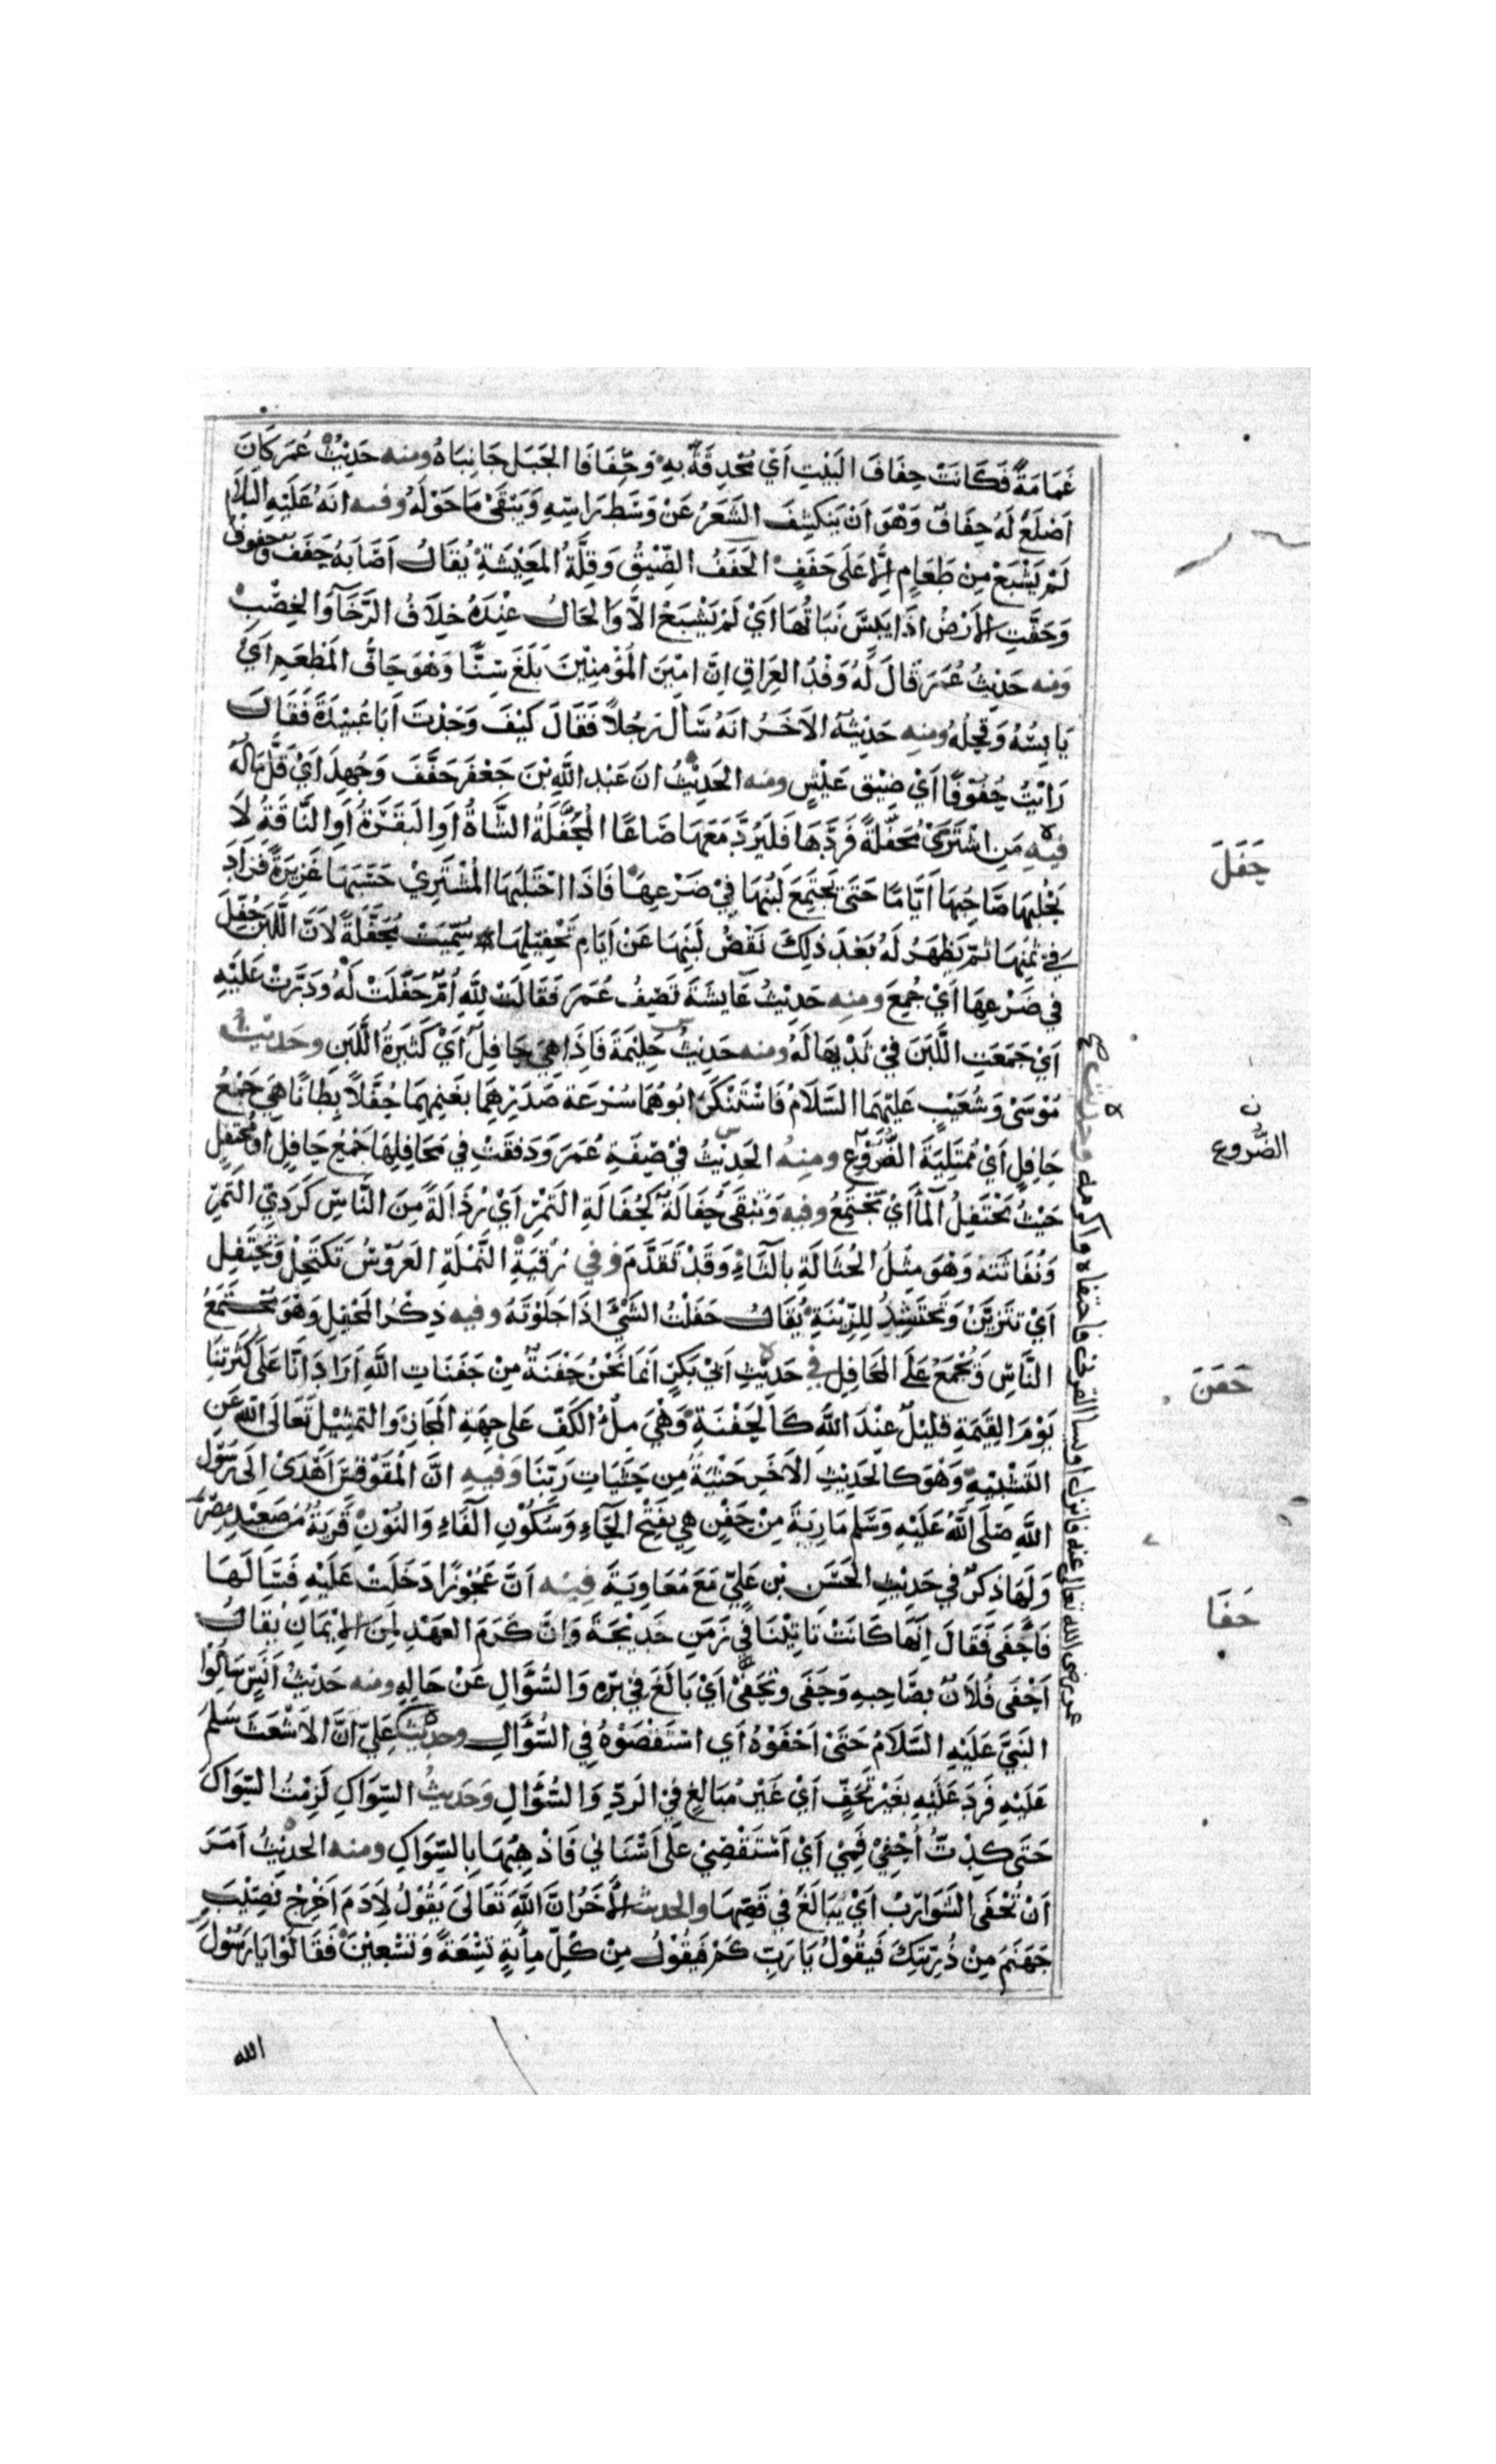 غَمَامَةٌ فَكَانَتْ حِفَافَ البَيْتِ اَيْ مُحْدِقَةً بِهِ وَحِفَافَا الجَبَلِ جَانِبَاهُ ومنه حَدِيْثُ عُمَرَ كَانَ
اَصْلَعَ لَهُ حِفَافٌ وَهْوَ اَنْ يَنْكَشِفَ الشَّعَرُ عَنْ وَسَطِ رَاسِهِ وَيَبْقَىْ مَا حَوْلَهُ وفيه انَهُ عَلَيْهِ السَلَامُ
لَمْ يَشْبَعْ مِنْ طَعَامٍ اِلَّا عَلَى حَفَفٍ الحَفَفُ الضِّيْقُ وَقِلَّةُ المَعِيْشَةِ يُقَالُ اَصَابَهُ حَفَفٌ وَحُفُوفٌ
وَحَفَّتِ الأَرْضُ اذَا يَبِسَ نَبَاتُهَا اَيْ لَمْ يَشْبَعْ الاَّ وَالحَالُ عِنْدَهُ خِلَافُ الرَّخَآءِ وَالخِصْبِ
وَمنه حَدِيْثُ عُمَرَ قَالَ لَهُ وَفْدُ العِرَاقِ اِنَّ امِيْرَ المُؤْمِنِيْنَ بَلَغَ سِنًّا وَهْوَ حَافُّ المَطْعَمِ اَيْ
يَابِسُهُ وَقَحِلُهُ ومنه حَدِيْثُهُ الآخَرُ انَهُ سَأَلَ رَجُلاً فَقَالَ كَيْفَ وَجَدْتَ اَبَا عُبَيْدَةَ فَقَالَ
رَاَيْتُ حُفُوْفًا اَيْ ضِيْقَ عَيْشٍ ومنه الحَدِيْثُ انَ عَبْدَ اللَّهِ بْنَ جَعْفَرَ حَفَّفَ وَجُهِدَ اَيْ قَلَّ مَالُهُ
فيه مَنِ اشْتَرَىْ مُحَفَّلَةً فَرَدَّهَا فَلْيَرُدَّ مَعَهَا صَاعًا المُحَفَّلَةُ الشَّاةُ اَوِ البَقَرَةُ اَوِ النَّاقَةُ لَا
يَحْلِبُهَا صَاحِبُهَا اَيَّامًا حَتَى يَجْتَمِعَ لَبَنُهَا فِيْ ضَرْعِهَا فَاذَا احْتَلَبَهَا المُشْتَرِيْ حَسَبَهَا غَزِيرَةً فَزَادَ
فِيْ ثَمَنِهَا ثُمَّ يَظْهَرُ لَهُ بَعْدَ ذٰلِكَ نَقْصُ لَبَنِهَا عَنْ اَيَامِ تَحْفِيْلِهَا سُمِّيَتْ مُحَفَّلَةً لاَنَّ اللَّبَنَ حُفِّلَ
فِي ضَرْعِهَا اَيْ جُمِعَ ومنه حَدِيْثُ عَايشَةَ تَصِفُ عُمَرَ فَقَالَتْ لِلَّهِ اُمٌّ حَفَلَتْ لَهُ وَدَرَّتْ عَلَيْهِ
اَيْ جَمَعَتِ اللَّبَنَ فِيْ ثَدْيِهَا لَهُ ومنه حَدِيْثُ حَلِيْمَةَ فَاذَا هِيَ حَافِلٌ اَيْ كَثِيرَةُ اللَّبَنِ وحَدِيْثُ
مُوْسَىْ وَشُعَيْبٍ عَلَيْهِمَا السَّلَامُ فَاسْتَنْكَرَ ابُوْهُمَا سُرْعَةَ صَدَرِهِمَا بغَنَمِهِمَا حُفَّلاً بِطَانًا هِيَ جَمْعُ
حَافِلٍ اَيْ مُمْتَلِيَةَ الضُّرُوْعِ ومنهُ الحَدِيْثُ فِيْ صِفَةِ عُمَرَ وَدَفَقَتْ فِي مَحَافِلِهَا جَمْعُ حَافِلٍ اوْ مُحْتَفِلٍ
حَيْثُ يَحْتَفِلُ المَآءُ اَيْ يَجْتَمِعُ وفيه وَتَبْقَى حُفَالَةٌ كَحُفَالَةِ التَمْرِ اَيْ رُذَالَةٌ مِنَ النَّاسِ كَرَدِيِّ التَمْرِ
وَنُفَايَتِه وَهْوَ مِثْلُ الحُثَالَةِ بِالثَاءِ وَقَدْ تَقَدَّمَ وَفِي رُقيَةِ النَّمْلَةِ العَرُوْسُ تَكْتَحِلُ وَتَحْتَفِلُ
اَيْ تَتَزَيَّنُ وَتَحْتَشِدُ لِلزِّيْنَةِ يُقَالُ حَفَلْتُ الشَّيْءَ اذَا جَلَوْتَهُ وفيه ذِكْرُ المَحْفِلِ وَهْوَ مُجْتَمَعُ
النَّاسِ وَيُجْمَعُ عَلَى المَحَافِلِ فِي حَدِيْثِ اَبِيْ بَكَرٍ انَمَا نَحْنُ حَفْنَةٌ مِنْ حَفَنَاتِ اللَّهِ اَرَادَ انَّا عَلَى كَثْرَتِنَا
يَوْمَ القِيٰمَةِ قَلِيْلٌ عِنْدَ اللَّهِ كَالحَفْنَةِ وَهْيَ مِلْءُ الكَفِّ عَلَى جِهَةِ المَجَازِ وَالتمْثِيْلِ تَعَالَى اللهُ عَنِ
التَشْبِيْهِ وَهْوَ كَالحَدِيْثِ الآخَرِ حَثْيَةٌ مِنْ حَثَيَاتِ رَبِّنَا وَفيه انَّ المُقَوْقِسَ اَهْدَىْ اِلَى رَسُوْلِ
اللَّهِ صَلَى اللَّهُ عَلَيْهِ وَسَّلَم مَارِيَةَ مِنْ حَفْنٍ هِيَ بفَتْحِ الحَاءِ وَسُكُوْنِ الفَاءِ وَالنُوْنِ قَرْيَةٌ مِنْ صَعِيْدِ مِصْرَ
وَلَهَا ذِكْرٌ فِي حَدِيْثِ الحَسَنِ بْنِ عَلِيٍّ مَعَ مُعَاوِيَةَ فيه اَنَّ عَجُوْزًا دَخَلَتْ عَلَيْهِ فَسَأَلَهَا
فَاَحْفَى فَقَالَ اِنَّهَا كَانَتْ تَاتِيْنَا فِي زَمَنِ خَدِيْجَةَ وَانَّ كَرَمَ العَهْدِ مِنَ الإِيْمَانِ يُقَالُ
اَحْفَى فُلَانٌ بِصَاحِبِهِ وَحَفِيَ وَتَحَفَّىْ اَيْ بَالَغَ فِيْ بِرِّهِ وَالسُّؤَالِ عَنْ حَالِهِ ومنه حَدِيْثُ اَنَسٍ سَاَلُوا
النَبِيَّ عَلَيْهِ السَّلَامُ حَتَىْ اَحْفَوْهُ اَيِ اسْتَقْصَوْهُ فِي السُّؤَالِ وحديث عَلِيٍّ اَنَّ الاَشْعَثَ سَلَّمَ
عَلَيْهِ فَرَدَ عَلَيْهِ بِغَيْرِ تَحَفٍّ اَيْ غَيْرَ مُبَالِغٍ فِي الرَدِّ وَالسُّؤَالِ وَحَدِيثُ السِّوَاكِ لَزِمْتُ السِّوَاكَ
حَتَى كِدْتُ اُحْفِيْ فَمِيْ اَيْ اَسْتَقْصِيْ عَلَى اَسْنَانِي فَاُذْهِبُهَا بِالسِّوَاكِ ومنه الحَدِيْثُ اَمَرَ
اَنْ تُحْفَى الشَوَارِبُ اَيْ يُبَالَغَ فِي قَصِّهَا والحديث الآخَرُ انَّ اللَّهَ تَعَالَى يَقُوْلُ لِآدَمَ اَخْرِجْ نَصِيْبَ
جَهَنَمَ مِنْ ذُرِّيَتِكَ فَيَقُوْلُ يَا رَبِّ كَمْ فَيَقُوْلُ مِنْ كُلِّ مِأيَةٍ تِسْعَةً وَتسْعِيْنَ فَقَالُوْا يَا رَسُوْلَ
الله
حَفَلَ
ن
الضُّرُوع
حَفَنَ
حَفَا